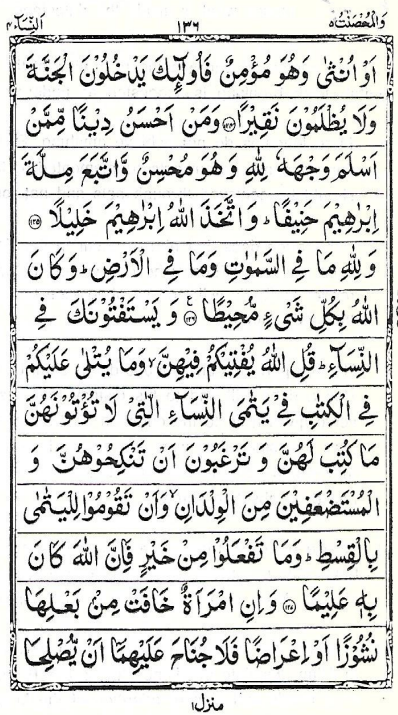 وَالْمُحْصَنٰتُ ٥ ١٣٦ اَلنِّسَآء ٤
اَوْ اُنْثٰى وَهُوَ مُؤْمِنٌ فَاُولٰٓئِكَ يَدْخُلُوْنَ الْجَنَّةَ
وَلَا يُظْلَمُوْنَ نَقِيْرًا ﴿١٢٤﴾ وَمَنْ اَحْسَنُ دِيْنًا مِّمَّنْ
اَسْلَمَ وَجْهَهٗ لِلّٰهِ وَهُوَ مُحْسِنٌ وَّاتَّبَعَ مِلَّةَ
اِبْرٰهِيْمَ حَنِيْفًا ؕ وَاتَّخَذَ اللّٰهُ اِبْرٰهِيْمَ خَلِيْلًا ﴿١٢٥﴾
وَلِلّٰهِ مَا فِى السَّمٰوٰتِ وَمَا فِى الْاَرْضِ ؕ وَكَانَ
اللّٰهُ بِكُلِّ شَىْءٍ مُّحِيْطًا ﴿١٢٦﴾ وَيَسْتَفْتُوْنَكَ فِى
النِّسَآءِ ؕ قُلِ اللّٰهُ يُفْتِيْكُمْ فِيْهِنَّ ۙ وَمَا يُتْلٰى عَلَيْكُمْ
فِى الْكِتٰبِ فِىْ يَتٰمَى النِّسَآءِ الّٰتِىْ لَا تُؤْتُوْنَهُنَّ
مَا كُتِبَ لَهُنَّ وَتَرْغَبُوْنَ اَنْ تَنْكِحُوْهُنَّ وَ
الْمُسْتَضْعَفِيْنَ مِنَ الْوِلْدَانِ ۙ وَاَنْ تَقُوْمُوْا لِلْيَتٰمٰى
بِالْقِسْطِ ؕ وَمَا تَفْعَلُوْا مِنْ خَيْرٍ فَاِنَّ اللّٰهَ كَانَ
بِهٖ عَلِيْمًا ﴿١٢٧﴾ وَاِنِ امْرَاَةٌ خَافَتْ مِنْۢ بَعْلِهَا
نُشُوْزًا اَوْ اِعْرَاضًا فَلَا جُنَاحَ عَلَيْهِمَاۤ اَنْ يُّصْلِحَا
منزل ١